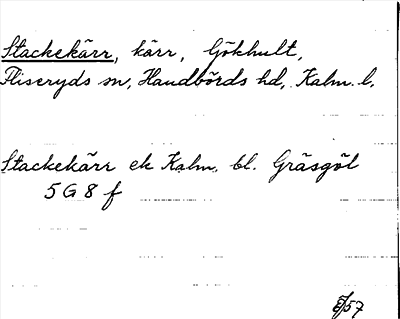 Stackekärr, kärr, Gökhult,
Fliseryds sn, Handbörds hd, Kalm. l.
Stackekärr ek Kalm. bl. Gräsgöl
5 G 8 f
57